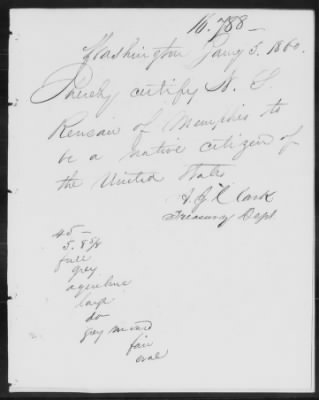 16.788—
Washington Jany 5. 1860.
I hereby certify N. S.
Rensair of Memphis to
be a native citizen of
the United States
Clark
Treasury Dept.
45—
5. 8 5/8
full
grey
aquiline
large
do
grey mixed
fair
oval